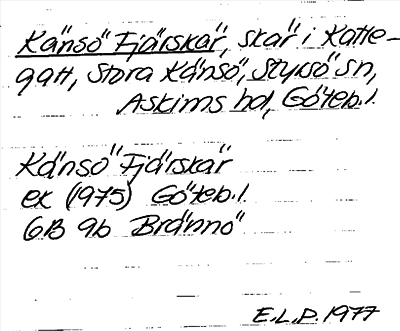 Känsö Fjärskär, skär i Katte-
gatt, Stora Känsö, Styrsö sn,
Askims hd, Göteb.l.
Känsö Fjärskär
ek (1975) Göteb.l.
6B 9b Brännö
E.L.P. 1977